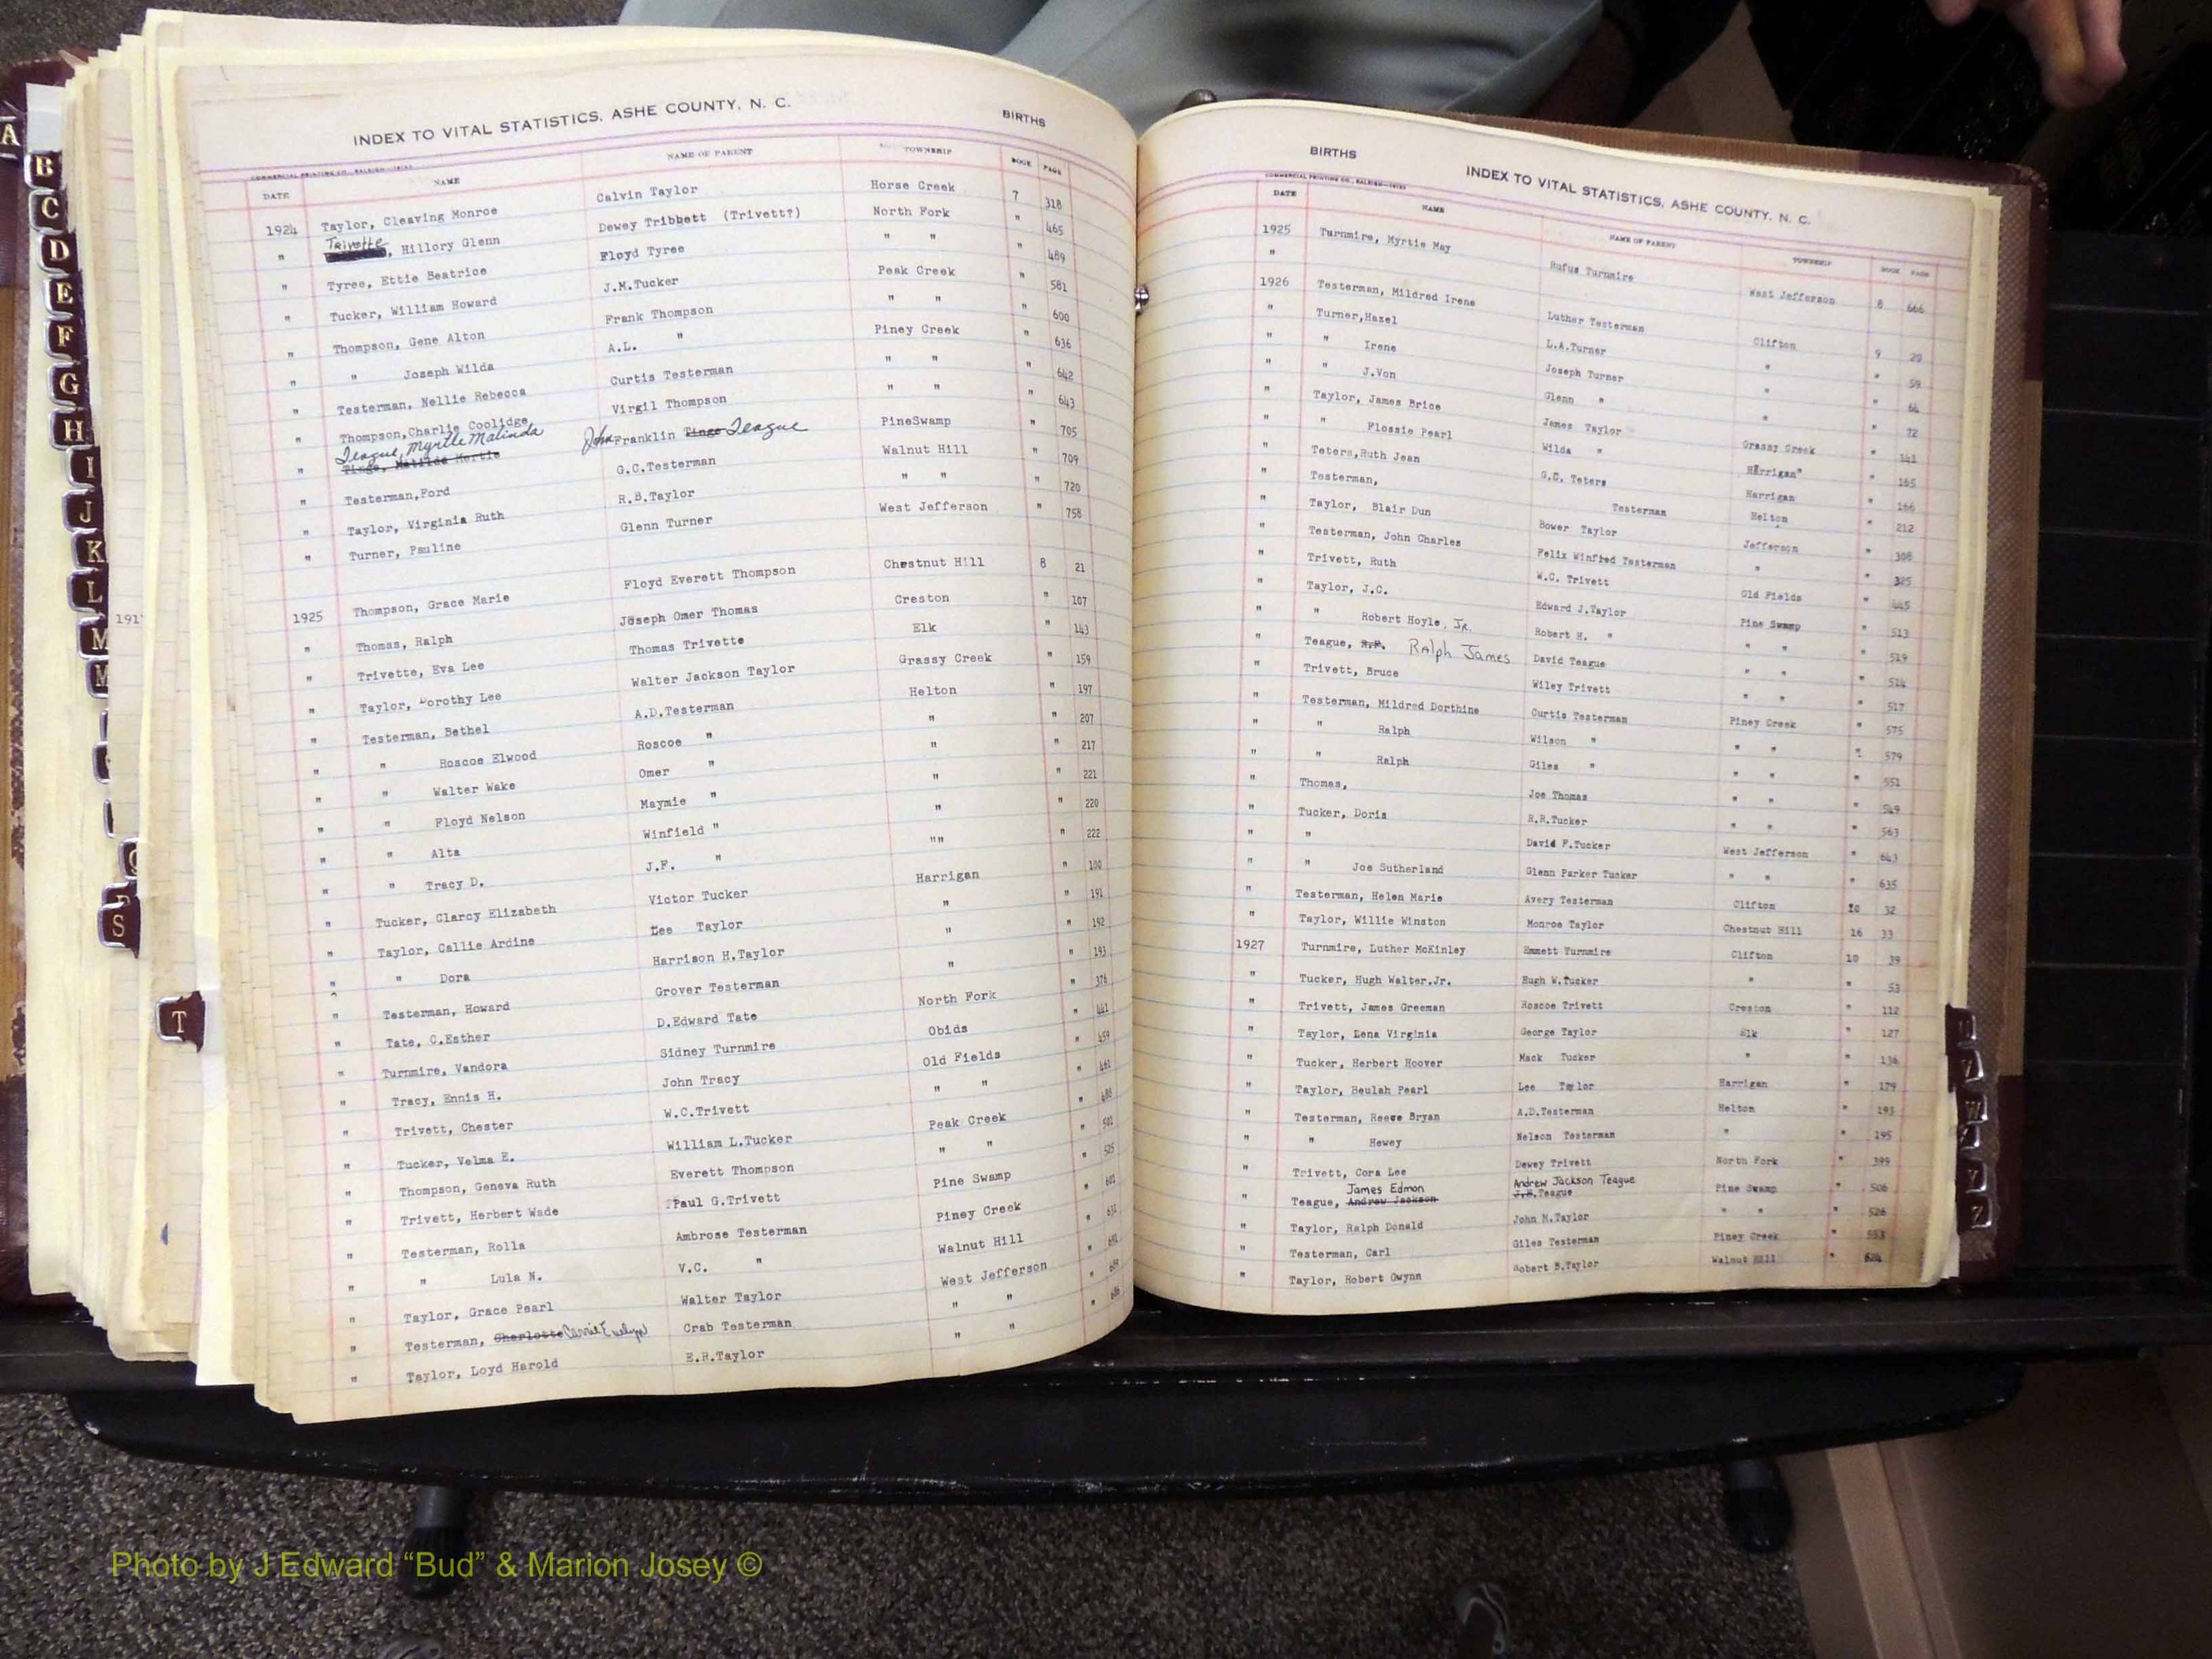 INDEX TO VITAL STATISTICS, ASHE COUNTY, N. C. BIRTHS
COMMERCIAL PRINTING CO., RALEIGH
DATE NAME NAME OF PARENT TOWNSHIP BOOK PAGE
1924 Taylor, Cleaving Monroe Calvin Taylor Horse Creek 7 318
" Trivette, Hillory Glenn Dewey Tribbett (Trivett?) North Fork " 465
" Tyree, Ettie Beatrice Floyd Tyree " " " 489
" Tucker, William Howard J.M.Tucker Peak Creek " 581
" Thompson, Gene Alton Frank Thompson " " " 600
" " Joseph Wilda A.L. " Piney Creek " 636
" Testerman, Nellie Rebecca Curtis Testerman " " " 642
" Thompson,Charlie Coolidge Virgil Thompson " " " 643
Teague, Myrtle Malinda
" Tinge, Matilda Mertie John Franklin Tinge Teague PineSwamp " 705
" Testerman,Ford G.C.Testerman Walnut Hill " 709
" Taylor, Virginia Ruth R.B.Taylor " " " 720
" Turner, Pauline Glenn Turner West Jefferson " 758
1925 Thompson, Grace Marie Floyd Everett Thompson Chestnut Hill 8 21
" Thomas, Ralph Joseph Omer Thomas Creston " 107
" Trivette, Eva Lee Thomas Trivette Elk " 143
" Taylor, Dorothy Lee Walter Jackson Taylor Grassy Creek " 159
" Testerman, Bethel A.D.Testerman Helton " 197
" " Roscoe Elwood Roscoe " " " 207
" " Walter Wake Omer " " " 217
" " Floyd Nelson Maymie " " " 221
" " Alta Winfield " " " 220
" " Tracy D. J.F. " "" " 222
" Tucker, Clarcy Elizabeth Victor Tucker Harrigan "
" Taylor, Callie Ardine Lee Taylor " " 191
" " Dora Harrison H.Taylor " " 192
" Testerman, Howard Grover Testerman " " 193
" Tate, C.Esther D.Edward Tate North Fork " 376
" Turnmire, Vandora Sidney Turnmire Obids " 441
" Tracy, Ennis H. John Tracy Old Fields " 459
" Trivett, Chester W.C.Trivett " " " 461
" Tucker, Velma E. William L.Tucker Peak Creek " 488
" Thompson, Geneva Ruth Everett Thompson " " " 501
" Trivett, Herbert Wade Paul G.Trivett Pine Swamp " 525
" Testerman, Rolla Ambrose Testerman Piney Creek " 602
" " Lula N. V.C. " Walnut Hill " 631
" Taylor, Grace Pearl Walter Taylor West Jefferson "
" Testerman, Charlotte Carrie Evelyn Crab Testerman " " "
" Taylor, Loyd Harold E.R.Taylor " " "
BIRTHS INDEX TO VITAL STATISTICS, ASHE COUNTY, N. C.
COMMERCIAL PRINTING CO., RALEIGH
DATE NAME NAME OF PARENT TOWNSHIP BOOK PAGE
1925 Turnmire, Myrtie May Rufus Turnmire West Jefferson 8 666
"
1926 Testerman, Mildred Irene Luther Testerman Clifton 9 20
" Turner,Hazel L.A.Turner " " 59
" " Irene Joseph Turner " " 64
" " J.Von Glenn " " " 72
" Taylor, James Brice James Taylor Grassy Creek " 141
" " Flossie Pearl Wilda " Harrigan" " 165
" Teters,Ruth Jean G.C. Teters Harrigan " 166
" Testerman, Testerman Helton " 212
" Taylor, Blair Dun Bower Taylor Jefferson " 308
" Testerman, John Charles Felix Winfred Testerman " " 325
" Trivett, Ruth W.C. Trivett Old Fields " 445
" Taylor, J.C. Edward J.Taylor Pine Swamp " 513
" " Robert Hoyle, Jr. Robert H. " " " " 519
" Teague, R.F. Ralph James David Teague " " " 514
" Trivett, Bruce Wiley Trivett " " " 517
" Testerman, Mildred Dorthine Curtis Testerman Piney Creek " 575
" " Ralph Wilson " " " " 579
" " Ralph Giles " " " " 551
" Thomas, Joe Thomas " " " 549
" Tucker, Doris R.R.Tucker " " " 563
" " David F.Tucker West Jefferson " 643
" " Joe Sutherland Glenn Parker Tucker " " " 635
" Testerman, Helen Marie Avery Testerman Clifton 10 32
" Taylor, Willie Winston Monroe Taylor Chestnut Hill 16 33
1927 Turnmire, Luther McKinley Emmett Turnmire Clifton 10 39
" Tucker, Hugh Walter.Jr. Hugh W.Tucker " " 53
" Trivett, James Greeman Roscoe Trivett Creston " 112
" Taylor, Lena Virginia George Taylor Elk " 127
" Tucker, Herbert Hoover Mack Tucker " " 136
" Taylor, Beulah Pearl Lee Taylor Harrigan " 179
" Testerman, Reeve Bryan A.D.Testerman Helton " 193
" " Hewey Nelson Testerman " " 195
" Trivett, Cora Lee Dewey Trivett North Fork " 399
James Edmon Andrew Jackson Teague
" Teague, Andrew Jackson J.R.Teague Pine Swamp " 506
" Taylor, Ralph Donald John N.Taylor " " " 526
" Testerman, Carl Giles Testerman Piney Creek " 553
" Taylor, Robert Gwynn Robert B.Taylor Walnut Hill "
A
B
C
D
E
F
G
H
I
J
K
L
M
M
S
T
191
Photo by J Edward “Bud” & Marion Josey ©